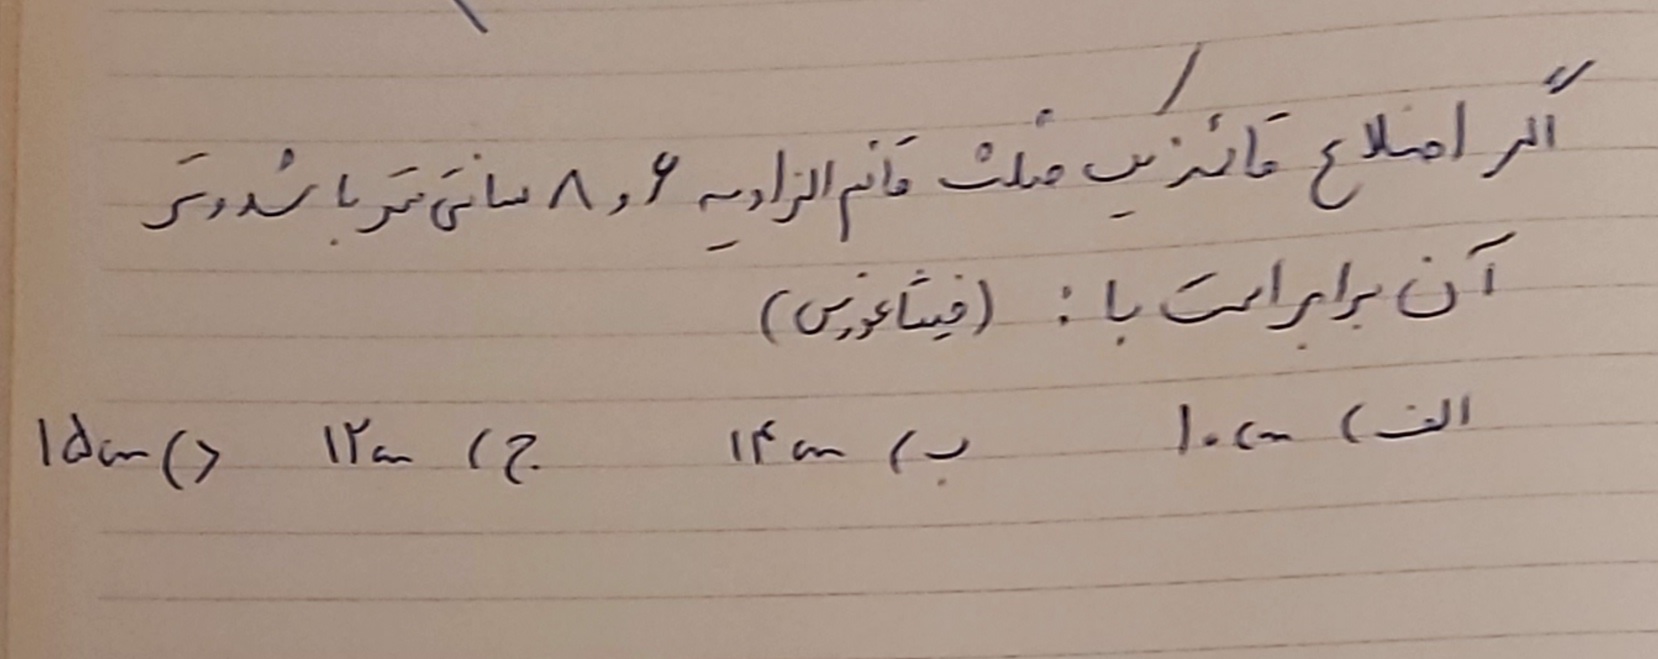 اگر اضلاع قائمه یک مثلث قائم الزاویه ۶ و ۸ سانتی متر باشد وتر
آن برابر است با : (فیثاغورس)
الف) ۱۰cm ب) ۱۴cm ج) ۱۲cm د) ۱۵cm